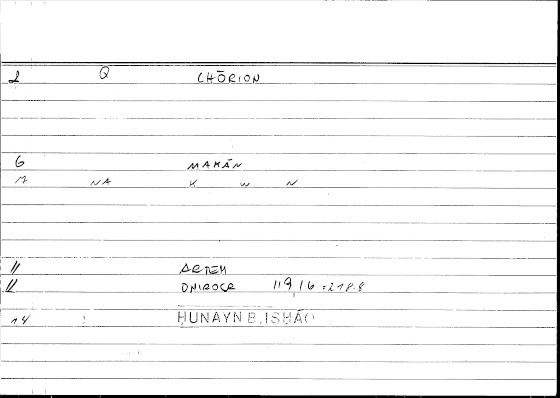 1 Q CHŌRION
6 MAKĀN
7 NA K W N
11 ARTEM
11 ONIROCR 119,16 = 218.8
14 HUNAYN B. ISHĀQ